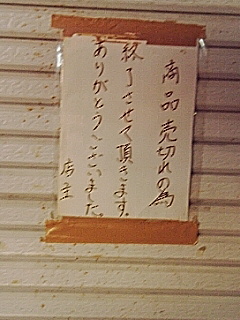 商品売切れの為
終了させて頂きます。
ありがとうございました。
店主